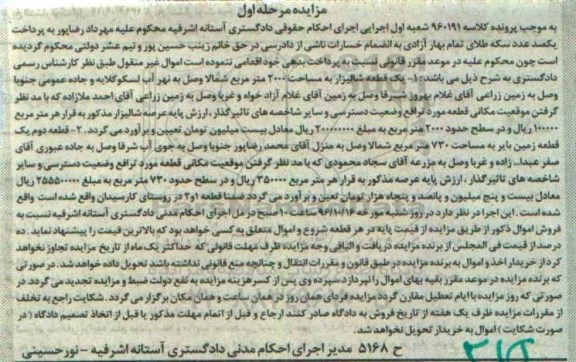 مزایده مرحله اول
به موجب پرونده کلاسه ۹۶۰۱۹۱ شعبه اول اجرایی اجرای احکام حقوقی دادگستری آستانه اشرفیه محکوم علیه مهرداد رضاپور به پرداخت
یکصد عدد سکه طلای تمام بهار آزادی به انضمام خسارات ناشی از دادرسی در حق خانم زینب حسین پور و نیم عشر دولتی محکوم گردیده
است چون محکوم علیه در موعد مقرر قانونی نسبت به پرداخت بدهی خود اقدامی ننموده است اموال غیر منقول طبق نظر کارشناس رسمی
دادگستری به شرح ذیل می باشد: ۱- یک قطعه شالیزار به مساحت ۲۰۰۰ متر مربع شمالا وصل به نهر آب اسکولکایه و جاده عمومی جنوبا
وصل به زمین زراعی آقای غلام بهروز شرقا وصل به زمین آقای غلام آزاد خواه و غربا وصل به زمین زراعی آقای احمد ملازاده که با مد نظر
گرفتن موقعیت مکانی قطعه مورد ترافع وضعیت دسترسی و سایر شاخصه های تاثیرگذار، ارزش پایه عرصه شالیزار مذکور به قرار هر متر مربع
۱۰۰۰۰۰ ریال و در سطح حدود ۲۰۰۰ متر مربع به مبلغ ۲۰۰۰۰۰۰۰۰ ریال معادل بیست میلیون تومان تعیین و برآورد می گردد. ۲- قطعه دوم یک
قطعه زمین بایر به مساحت ۷۳۰ متر مربع شمالا وصل به منزل آقای محمد رضاپور جنوبا وصل به جوی آب شرقا وصل به جاده عبوری آقای
صفر عبدا.. زاده و غربا وصل به مزرعه آقای سجاد محمودی که با مد نظر گرفتن موقعیت مکانی قطعه مورد ترافع وضعیت دسترسی و سایر
شاخصه های تاثیر گذار، ارزش پایه عرصه مذکور به قرار هر متر مربع ۳۵۰۰۰۰ ریال و در سطح حدود ۷۳۰ متر مربع به مبلغ ۲۵۵۵۰۰۰۰۰ ریال
معادل بیست و پنج میلیون و پانصد و پنجاه هزار تومان تعیین و برآورد می گردد ضمنا قطعه ۱و۲ در روستای کارسیدان واقع شده است واقع
شده است. این اجرا در نظر دارد در روز شنبه مورخه ۹۶/۱۰/۱۶ ساعت ۱۰ صبح در مل اجرای احکام مدنی دادگستری آستانه اشرفیه نسبت به
فروش اموال ذکور از طریق مزایده از قیمت پایه در هر قطعه شروع و اموال متعلق به کسی خواهد بود که بالاترین قیمت را پیشنهاد نماید. ده
درصد از قیمت فی المجلس از برنده مزایده دریافت و الباقی وجه مزایده ظرف مهلت قانونی که حداکثر یک ماه از تاریخ مزایده تجاوز نخواهد
کرد از خریدار اخذ و اموال به برنده مزایده در طبق قانون و مقررات انتقال و چنانچه منع قانونی نداشته باشد تحویل داده خواهد شد. در صورتی
که برنده مزایده در موعد مقرر بقیه بهای اموال را نپردازد سپرده وی پس از کسر هزینه مزایده به نفع دولت ضبط و مزایده تجدید می گردد. در
صورتی که روز مزایده با ایام تعطیل مقارن گردد مزایده فردای همان روز در همان ساعت و همان مکان برگزار می گردد. شکایت راجع به تخلف
از مقررات مزایده ظرف یک هفته از تاریخ فروش به دادگاه صادر کننده ارجاع و قبل از اتمام مهلت مذکور یا قبل از اتخاذ تصمیم دادگاه (در
صورت شکایت) اموال به خریدار تحویل نخواهد شد.
ح ۵۱۶۸ مدیر اجرای احکام مدنی دادگستری آستانه اشرفیه - نورحسینی